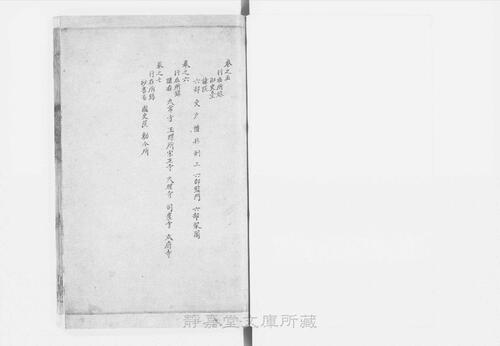 卷之五
行在所錄
御史臺
諫院
六部 吏 户 禮 兵 刑 工 六部監門 六部架閣
卷之六
行在所錄
諸寺 太常寺 玉牒所宗正寺 大理寺 司農寺 太府寺
卷之七
行在所錄
秘書省 國史院 勅令所
靜嘉堂文庫所藏